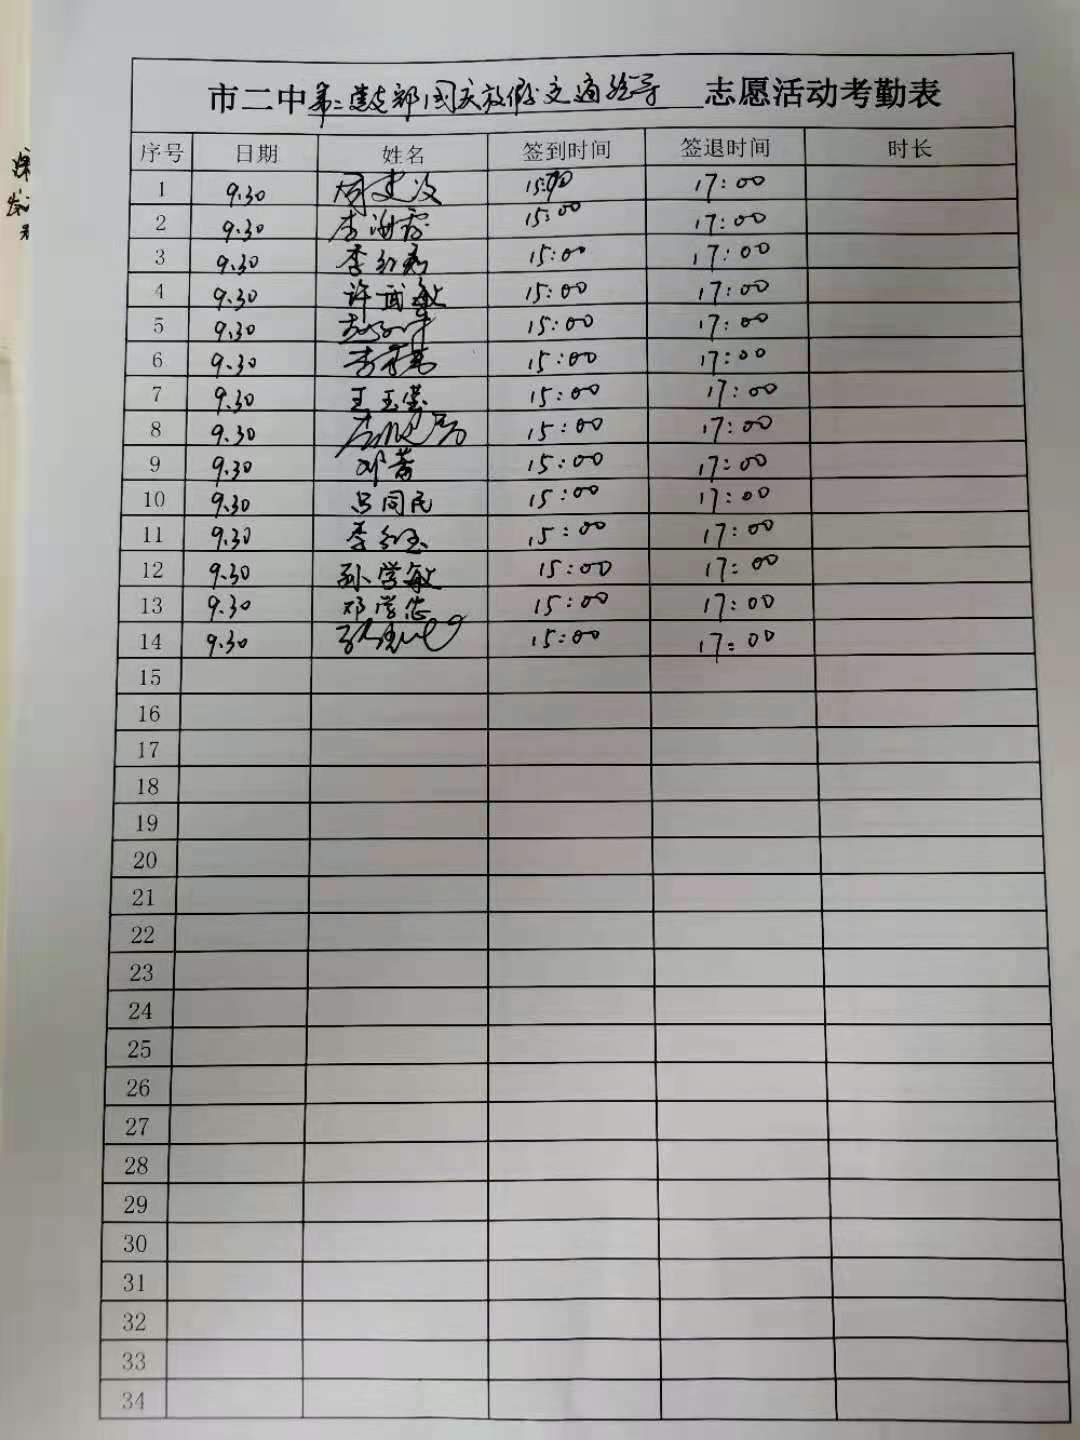 市二中第二党支部国庆放假交通疏导 志愿活动考勤表
序号 日期 姓名 签到时间 签退时间 时长
1 9.30 15:00 17:00
2 9.30 李海霞 15:00 17:00
3 9.30 李红菊 15:00 17:00
4 9.30 许武敏 15:00 17:00
5 9.30 15:00 17:00
6 9.30 15:00 17:00
7 9.30 王玉莹 15:00 17:00
8 9.30 15:00 17:00
9 9.30 邓蕾 15:00 17:00
10 9.30 吕同民 15:00 17:00
11 9.30 李红玉 15:00 17:00
12 9.30 孙学敏 15:00 17:00
13 9.30 邓学忠 15:00 17:00
14 9.30 15:00 17:00
15
16
17
18
19
20
21
22
23
24
25
26
27
28
29
30
31
32
33
34